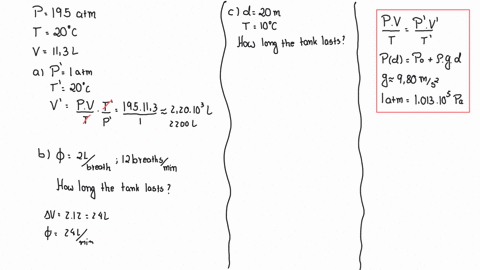 P = 195 atm
T = 20°C
V = 11,3 L
a) P' = 1 atm
T' = 20°C
V' = P.V/T . T'/P' = 195.11,3/1 ≈ 2,20.10³ L
2200 L
b) ϕ = 2L/breath ; 12 breaths/min
How long the tank lasts?
ΔV = 2.12 = 24L
ϕ = 24L/min
c) d = 20 m
T = 10°C
How long the tank lasts?
P.V/T = P'.V'/T'
P(d) = P₀ + ρ.g d
g ≈ 9,80 m/s²
1 atm = 1.013.10⁵ Pa